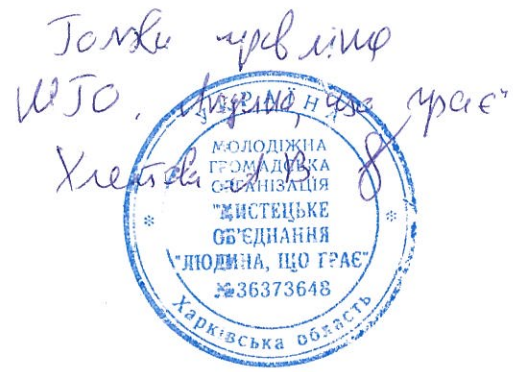 Голова правління
МГО „Людина, що грає"
А.В.
УКРАЇНА
МОЛОДІЖНА
ГРОМАДСЬКА
ОРГАНІЗАЦІЯ
"МИСТЕЦЬКЕ
ОБ'ЄДНАННЯ
"ЛЮДИНА, ЩО ГРАЄ"
№36373648
Харківська область